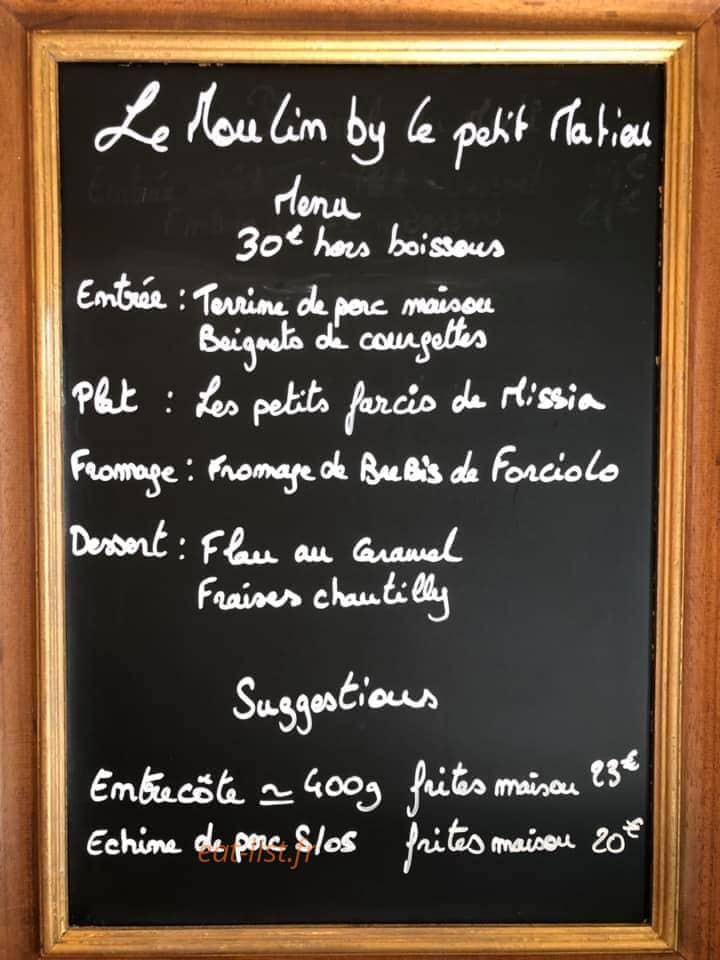 Le Moulin by le petit Matieu
Menu
30€ hors boissons
Entrée : Terrine de porc maison
Beignets de courgettes
Plat : Les petits farcis de Missia
Fromage : Fromage de BreBis de Forciolo
Dessert : Flan au Caramel
Fraises chantilly
Suggestions
Entrecôte ≃ 400g frites maison 23€
Echine de porc S/os frites maison 20€
eat-list.fr